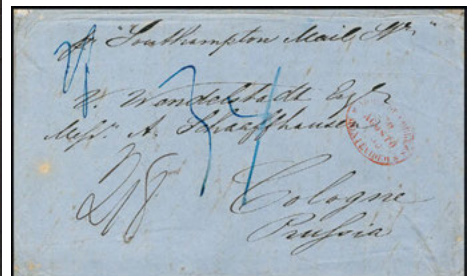 pr "Southampton Mail Str"
V. Wendelstadt Esqr
Messrs. A. Schaaffhausen
34
2/8
Cologne
Prussia
AGOSTO